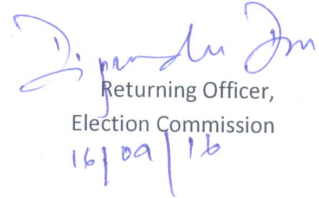 Returning Officer,
Election Commission
16/09/16